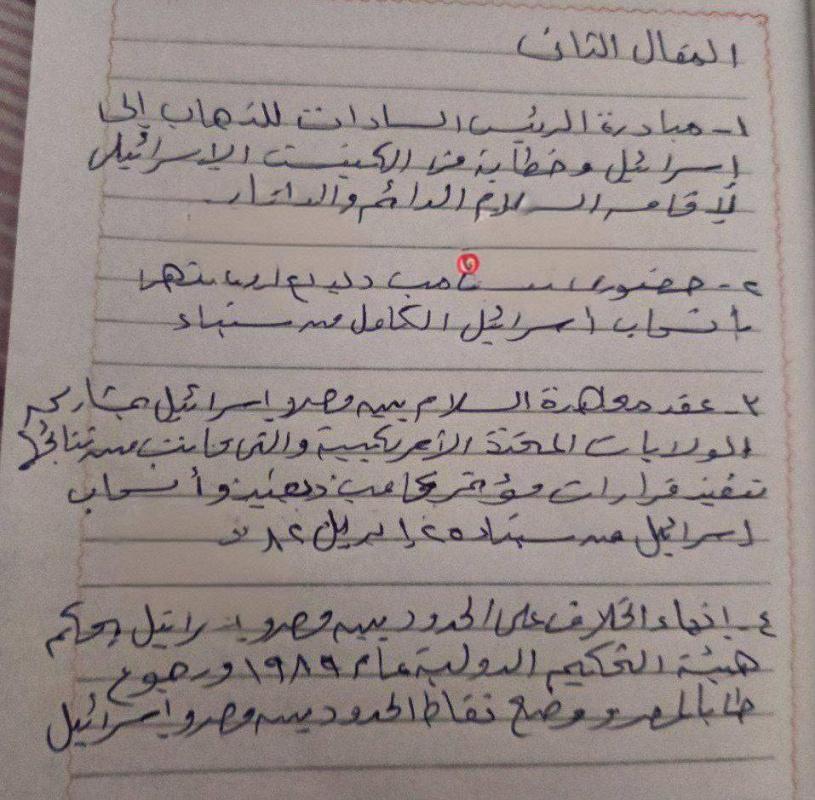 المقال الثانى
١- مبادرة الرئيس السادات للذهاب إلى
إسرائيل وخطابة فى الكينست الإسرائيلى
لإقامه السلام الدائم والعادل.
٢- حضور كامب ديفيد
بأنسحاب اسرائيل الكامل من سيناء
٣- عقد معاهدة السلام بين مصر واسرائيل بمشاركه
الولايات المتحدة الأمريكيية والتى كانت من نتائجها
تنفيذ قرارات مؤتمر كامب ديفيد وأنسحاب
اسرائيل من سيناء ٢٥ إبريل ٨٢
٤- إنهاء الخلاف على الحدود بين مصر واسرائيل بحكم
هيئة التحكيم الدولية عام ١٩٨٩ ورجوع
طابا لمصر ووضع نقاط الحدود بين مصر وإسرائيل